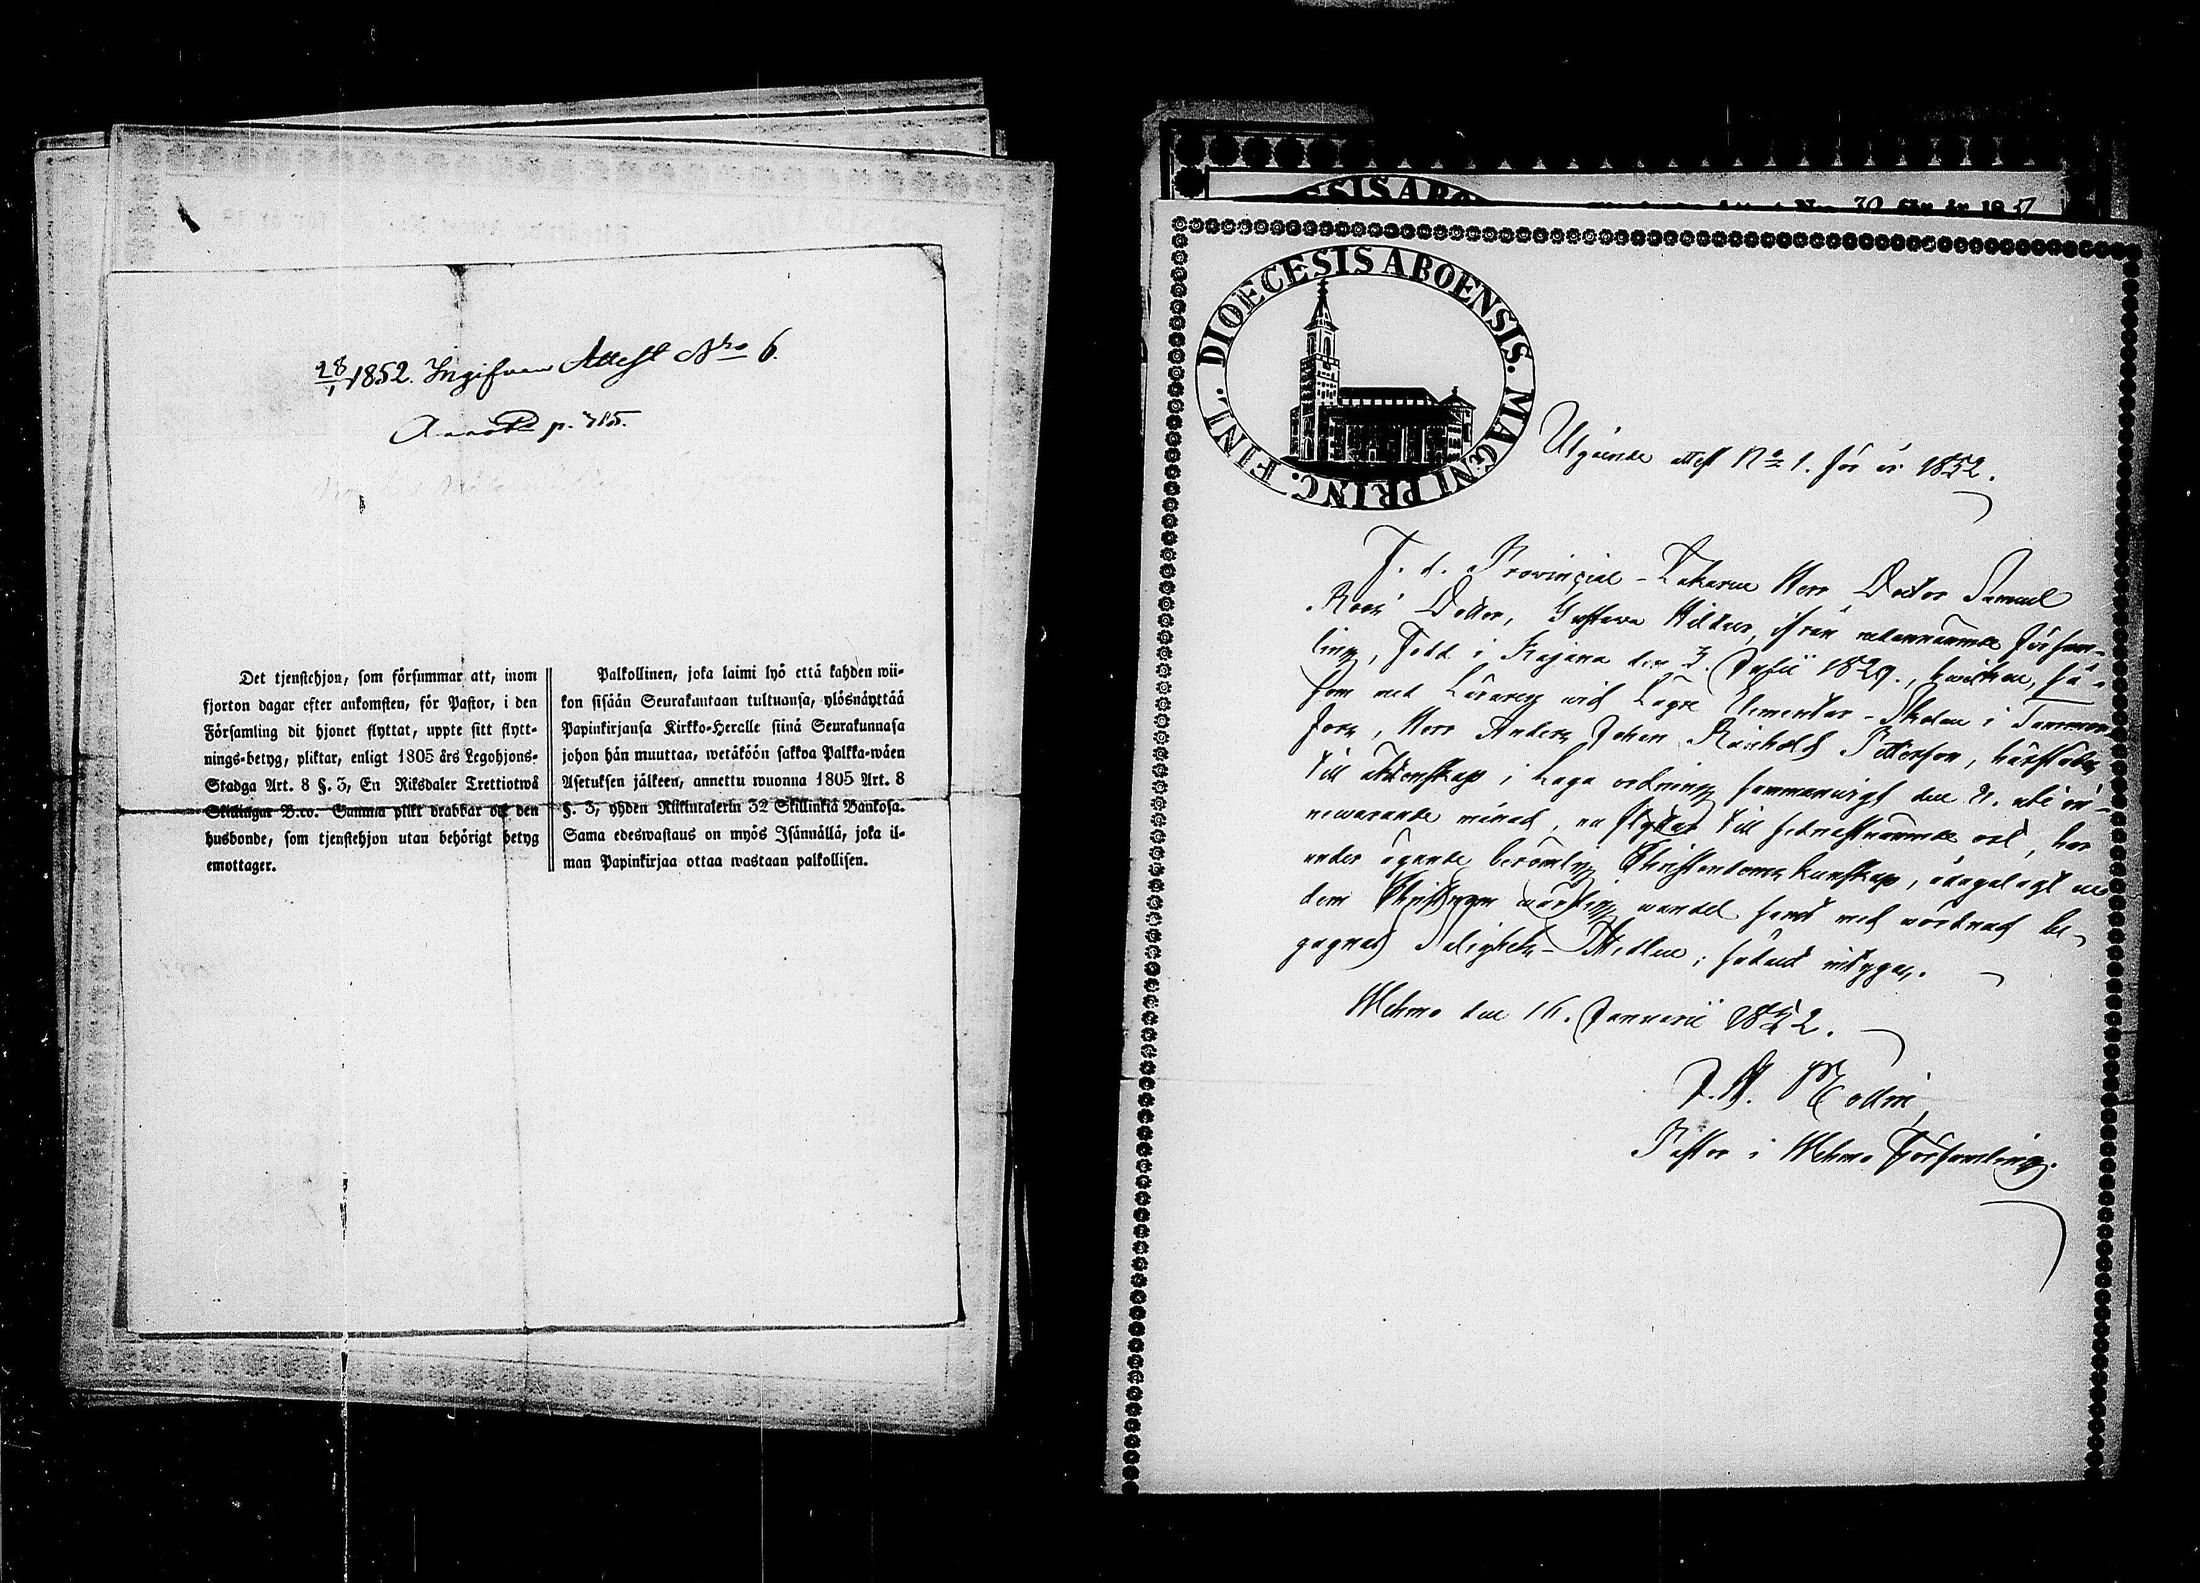 28/1 1852. Ingifven Attest Nro 6.
p. 785.
Det tjenstehjon, som försummar att, inom
fjorton dagar efter ankomsten, för Pastor, i den
Församling dit hjonet flyttat, uppte sitt flytt-
nings-betyg, pliktar, enligt 1805 års Legohjons-
Stadga Art. 8 §. 3, En Riksdaler Trettiotwå
Skillingar B:co. Samma plikt drabbar ock den
husbonde, som tjenstehjon utan behörigt betyg
emottager.
Palkollinen, joka laimi lyö että kahden wii-
kon sisään Seurakuntaan tultuansa, ylösnäyttää
Papinkirjansa Kirkko-Heralle siinä Seurakunnasa
johon hän muuttaa, wetäköön sakkoa Palkka-wäen
Asetuksen jälkeen, annettu wuonna 1805 Art. 8
§. 3, yhden Riikintalerin 32 Skillinkiä Bankosa.
Sama edeswastaus on myös Isännällä, joka il-
man Papinkirjaa ottaa wastaan palkollisen.
ESIS ABO
Attest No 30 för år 1851
DIOECESIS ABOENSIS. MAGNI PRINC. FINL.
Utgående attest No 1. för år 1852.
F. d. Provincial-Läkaren Herr Doctor Samuel
Roos' Dotter, Gustava Hildur, ifrån nedannämnde Försam-
ling, född i Kajana den 3. Julii 1829., hwilken, så-
som med Läraren wid Lägre Elementar-Skolan i Tammer-
fors, Herr Anders Johan Reinhold Petterson,
till äktenskap i laga ordning sammanwigd den 8. uti in-
newarande månad, nu flyttar till sednastnämnde ort, har
under ägande berömlig Christendoms kunskap, ådagalagt en
dem Christnom wärdig wandel samt med wördnad be-
gagnat Salighets-Medlen; sådant intygas.
Wehmo den 16. Januarii 1852.
Pastor i Wehmo Församling.